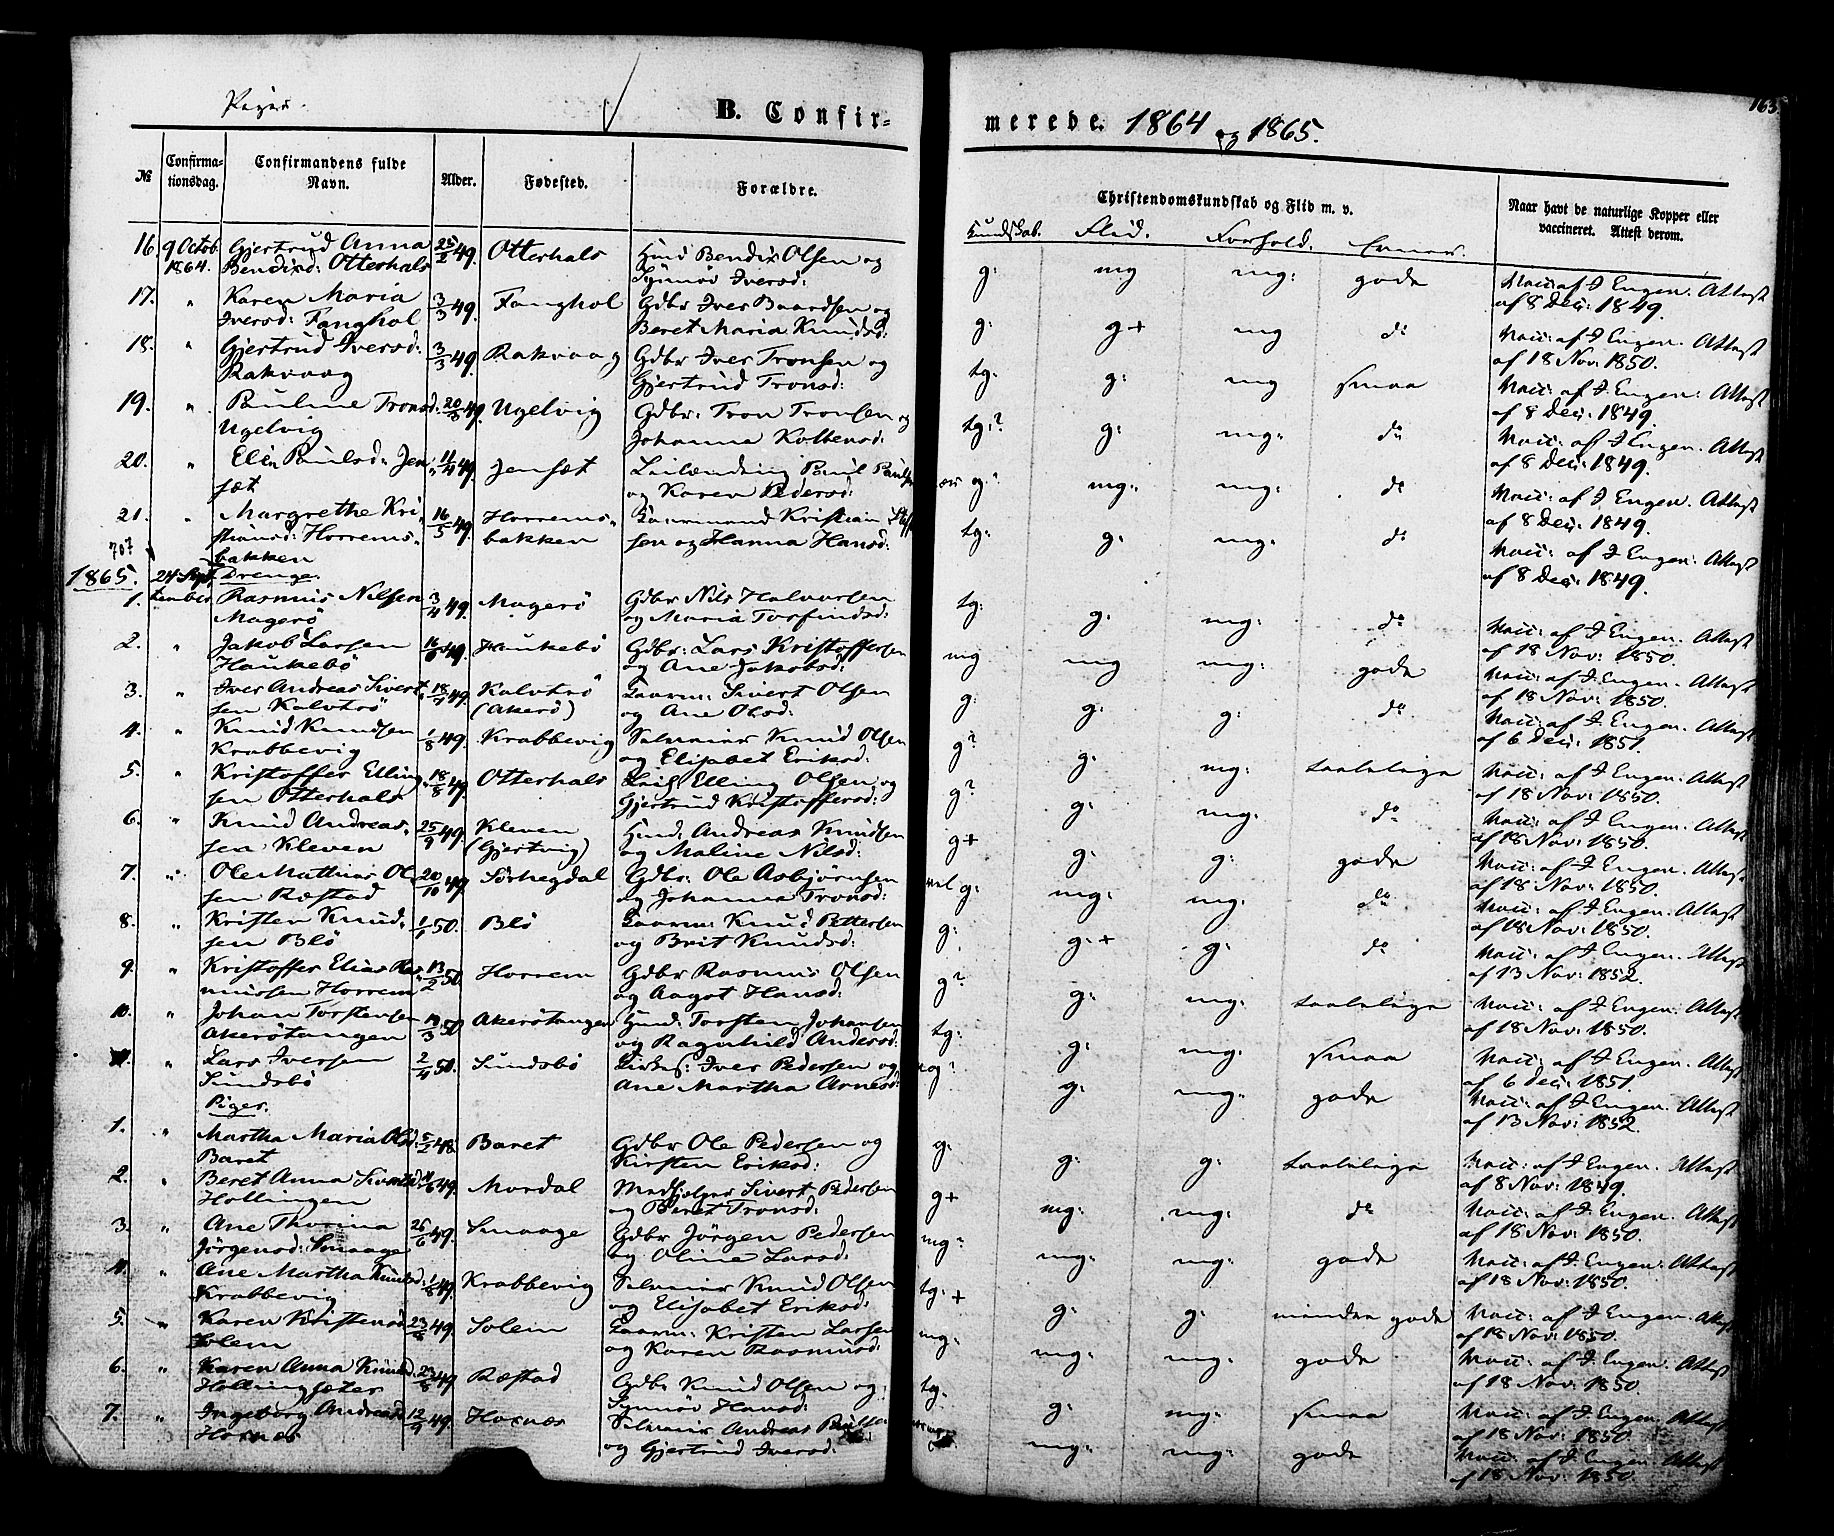 Piger.
B. Confir-
№
Confirma-
tionsdag.
Confirmandens fulde
Navn.
Alder.
Fødested.
Forældre.
16. 9 Octob. Gjertrud Anna 25/2 49. Otterhals Huusm: Bendix Olsen og
1864. Bendixd: Otterhals Synnøv Iversd:
17. " Karen Maria 3/3 49. Fanghol Gdbr Iver Baardsen og
Iversd: Fanghol Beret Maria Knudsd:
18. " Gjertrud Iversd: 3/3 49. Rakvaag Gdbr Iver Tronsen og
Rakvaag Gjertrud Tronsd:
19. " Pauline Tronsd: 20/3 49. Ugelvig Gdbr: Tron Tronsen og
Ugelvig Johanna Kolbensd:
20. " Elin Paulsd: Jen 11/4 49. Jensæt Leilænding Paul Paulsen
sæt og Karen Pedersd:
21. " Margrethe Kri 16/5 49. Horrems- Kristian
stiansd: Horrems- bakken sen og Hanna Hansd:
707 bakken
1865. 24 Sept Drenge.
1. tember Rasmus Nilsen 3/4 49. Magerö Gdbr Nils Halvorsen
Magerö og Maria Torfinsd:
2. " Jakob Larsen 16/6 49. Haukebö Gdbr: Lars Kristoffersen
Haukebö og Ane Jakobsd:
3. " Iver Andreas Sivert 18/7 49. Kalvtrö Sivert Olsen
sen Kalvtrö (Akerö) og Ane Olsd:
4. " Knud Knudsen 1/8 49. Krabbevig Selveier Knud Olsen
Krabbevig og Elisabet Eriksd:
5. " Kristoffer Elling 18/8 49. Otterhals Elling Olsen og
sen Otterhals Gjertrud Kristoffersd:
6. " Knud Andreas 25/9 49. Kleven Huusm: Andreas Knudsen
sen Kleven (Gjertvig) og Maline Nilsd:
7. " Ole Mathias Ol 20/10 49. Sörhegdal Gdbr: Ole Asbjörnsen
sen Ræstad og Johanna Tronsd:
8. " Kristen Knud- 1/1 50. Blö Knud Pettersen
sen Blö og Brit Knudsd:
9. " Kristoffer Elias Ras 13/2 50. Horrem Gdbr Rasmus Olsen
mussen Horrem og Aagot Hansd:
10. " Johan Torstensen 19/3 50 Akerötangen Huusm: Torsten Johansen
Akerötangen og Ragnhild Andersd:
11. " Lars Iversen 2/4 50. Sundsbö Iver Pedersen og
Sundsbö Ane Martha Arnesd:
Piger.
1. " Martha Maria Olsd 5/2 48. Baret Gdbr Ole Pedersen og
Baret Kirsten Eriksd:
2. " Beret Anna Sivertsd 49. Mordal Sivert Pedersen
Hollingen og Beret Tronsd:
3. " Ane Thorina 26/6 49. Smaage Gdbr Jörgen Pedersen
Jörgensd: Smaage og Oline Larsd:
4. " Ane Martha Knudsd: 1/8 49. Krabbevig Selveier Knud Olsen
Krabbevig og Elisabet Eriksd:
5. " Karen Kristensd 23/8 49. Solem Kristen Larsen
Solem og Karen Rasmusd:
6. " Karen Anna Knudsd. 29/8 49 Ræstad Gdbr Knud Olsen og
Hollingsæter Synnöv Hansd:
7. " Ingeborg Andreasd 12/9 49. Hornæs Selveier Andreas Paulsen
Hornæs og Gjertrud Iversd:
163
merede. 1864 og 1865.
Christendomskundskab og Flid m. v.
Naar havt de naturlige Kopper eller
vaccineret. Attest derom.
Kundskab. Flid. Forhold. Evner.
g: mg mg: gode Vacc: af J Engen. Attest
af 8 Dec: 1849.
g: g+ mg do Vacc: af J Engen. Attest
af 18 Nov: 1850.
tg: g: mg smaa Vacc: af J Engen: Attest
af 8 Dec: 1849.
tg:? g: mg: do Vacc: af J Engen. Attest
af 8 Dec: 1849.
g:? mg: mg: do Vacc: af J Engen. Attest
af 8 Dec: 1849.
tg: g: mg: do Vacc: af J Engen. Attest
af 8 Dec: 1849.
tg: g: mg: do Vacc: af J Engen. Attest
af 18 Nov: 1850.
mg mg mg: gode Vacc: af J. Engen. Attest
af 18 Nov: 1850.
g: g: g: do Vacc: af J Engen. Attest
af 6 Dec: 1851.
g? g: mg: taalelige Vacc: af J Engen: Attest
af 18 Nov: 1850.
g? g: mg: do Vacc: af J Engen: Attest
af 18 Nov: 1850.
g+ g: g: gode Vacc: af J Engen: Attest
af 18 Nov: 1850.
vel g: mg: mg: do Vacc: af J Engen: Attest
af 18 Nov: 1850.
g: g:+ g: do Vacc: af J Engen. Attest
af 13 Nov: 1852.
g? g: mg: taalelige Vacc: af J Engen: Attest
af 18 Nov: 1850.
tg: g: mg: smaa Vacc: af J Engen. Attest
af 6 Dec: 1851.
g: mg: gode Vacc: af J Engen. Attest
af 13 Nov: 1852.
g: g: g: taalelige Vacc: af J Engen. Attest
af 8 Nov: 1849.
g+ mg: mg: do Vacc: af J. Engen. Attest
af 18 Nov: 1850.
mg? mg: mg: gode Vacc: af J Engen: Attest
af 18 Nov: 1850.
tg:+ g: g: mindre gode Vacc: af J Engen. Attest
af 18 Nov: 1850.
mg: mg: mg: gode Vacc: af J. Engen. Attest
af 18 Nov: 1850.
tg: g: mg: smaa Vacc: af J Engen. Attest
af 18 Nov: 1850.
mg: mg: gode Vacc: af J. Engen. Attest
af 18 Nov: 1850.